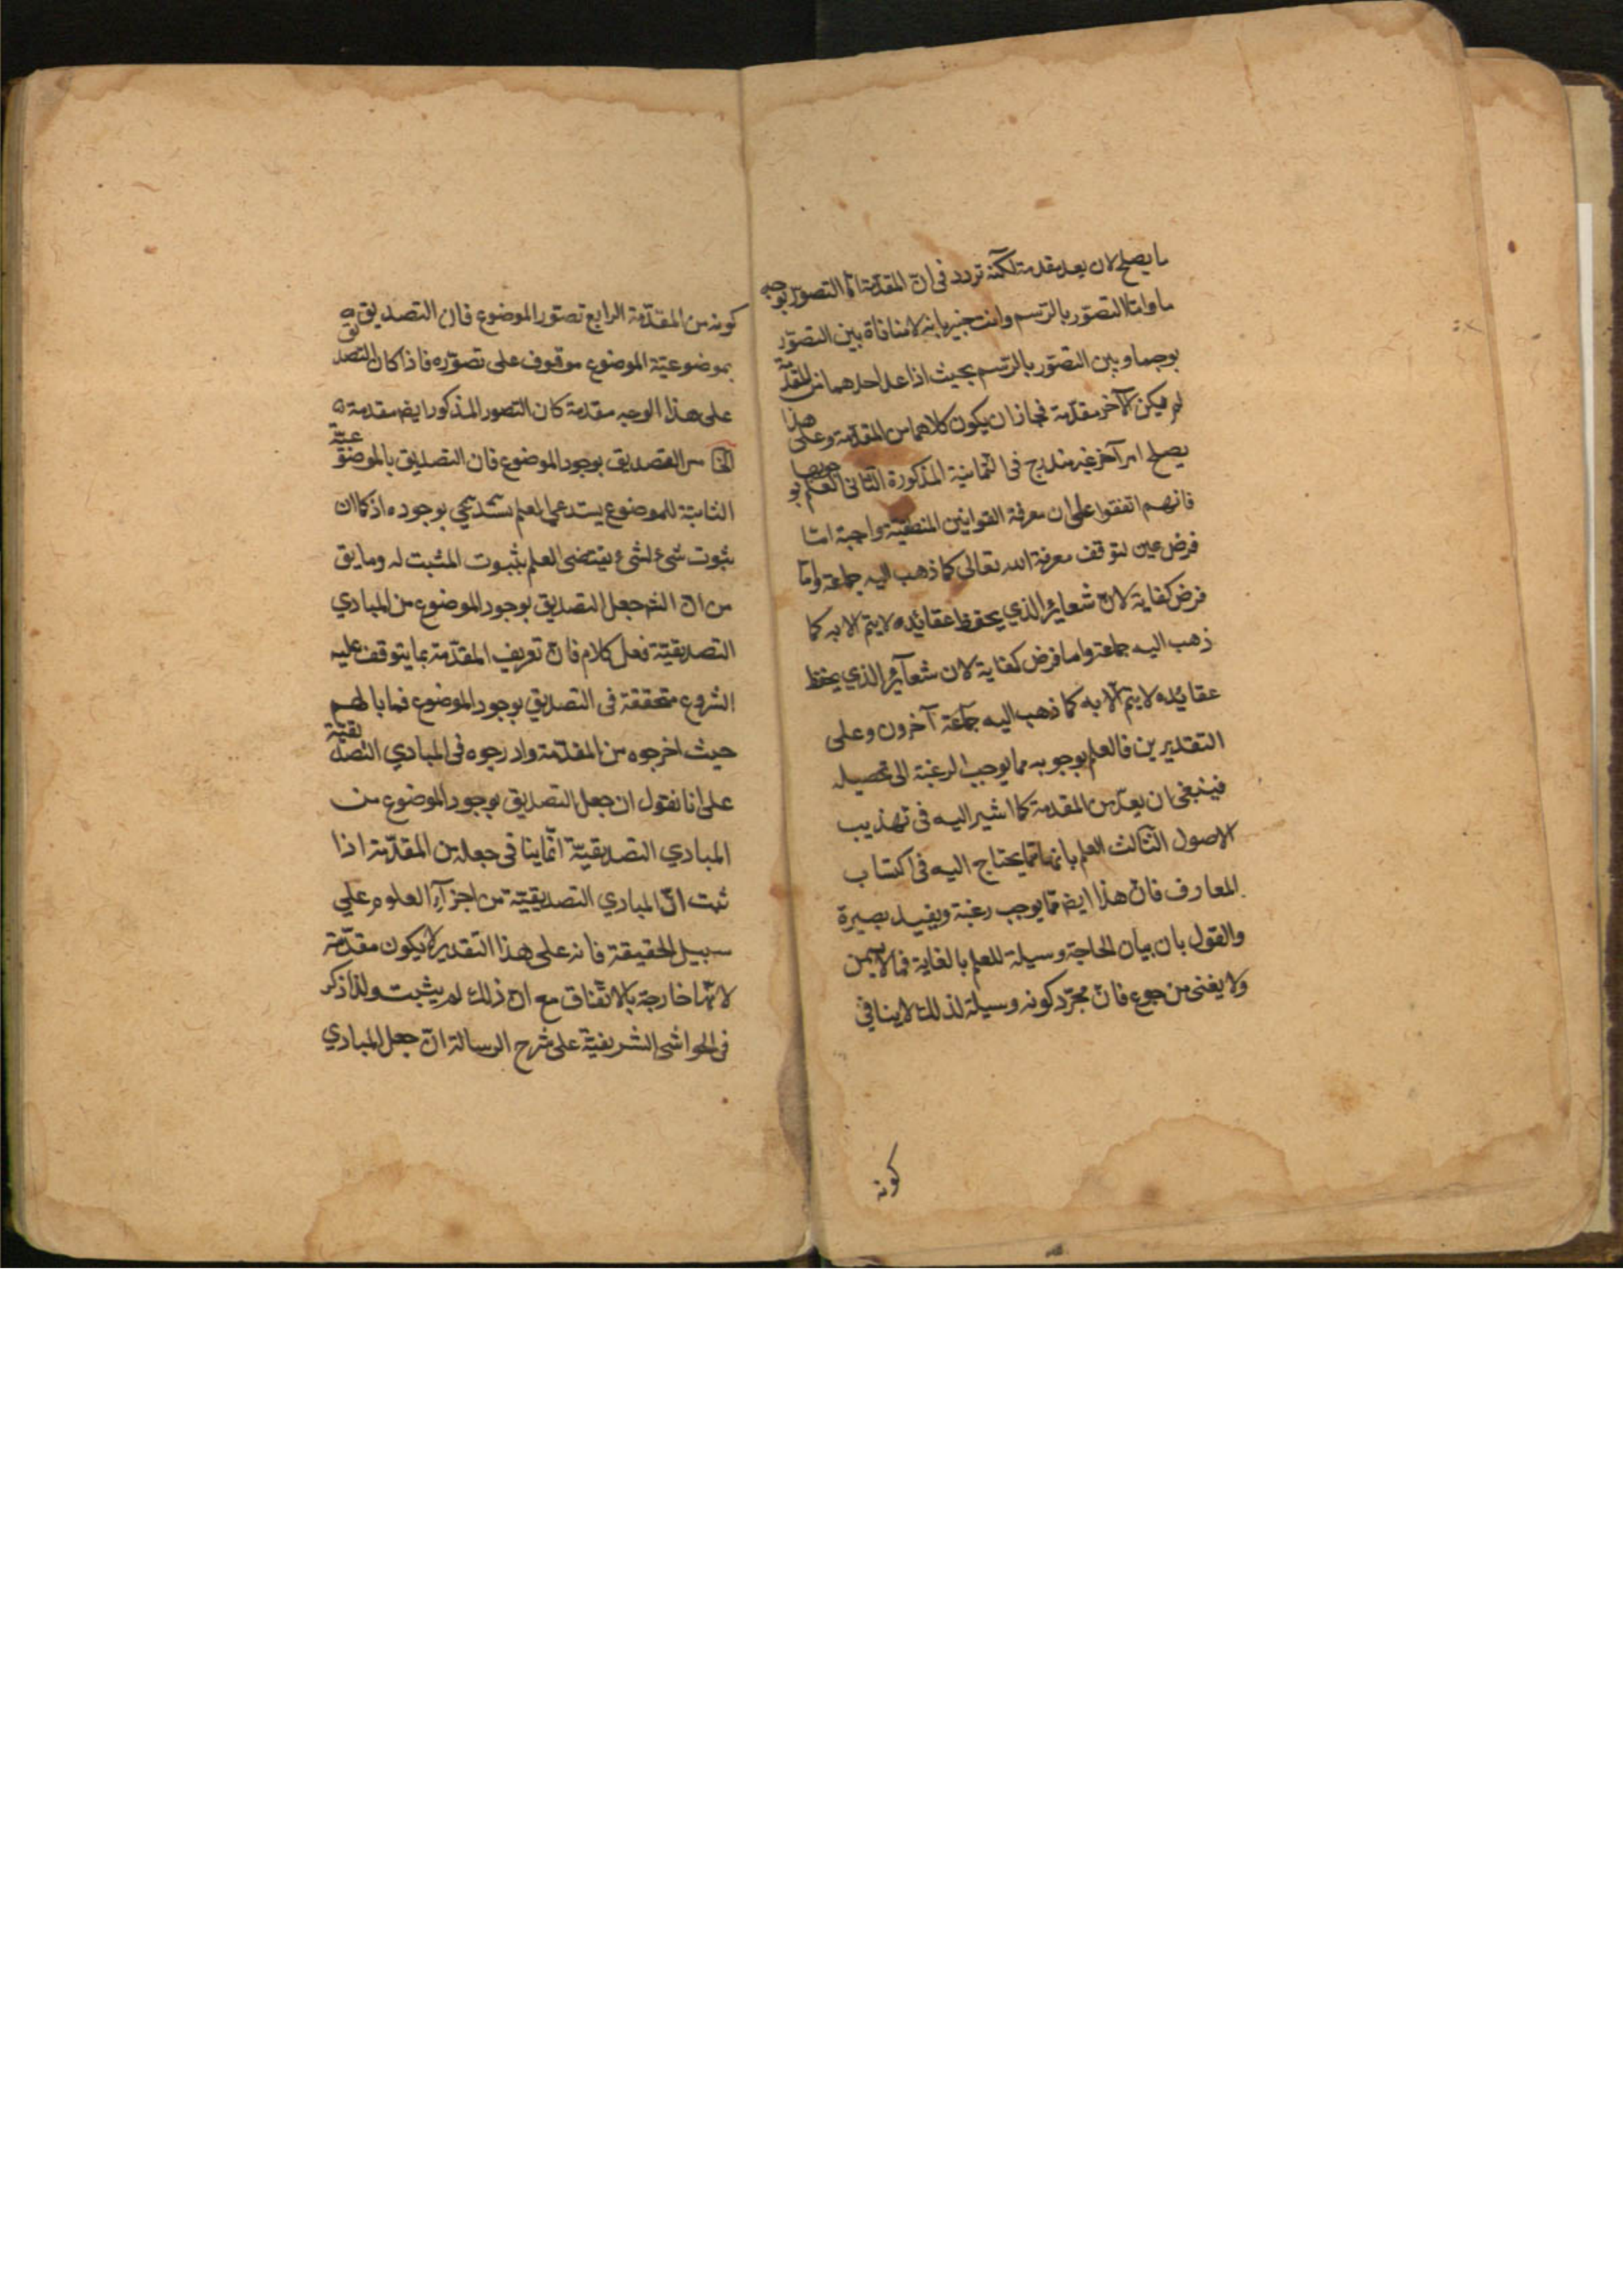 ما يصلح لان يعد مقدمة لكنه تردد في ان المقدمة اما التصور بوجه
ما واما التصور بالرسم وانت خبير بانه لا منافاة بين التصور
بوجه ما وبين التصور بالرسم بحيث اذا عد احدهما من المقدمة
لم يكن الآخر مقدمة فجاز ان يكون كلاهما من المقدمة وعلى هذا
يصلح امر آخر غير مندرج في الثمانية المذكورة الثاني العلم بوجوبها
فانهم اتفقوا على ان معرفة القوانين المنطقية واجبة اما
فرض عين لتوقف معرفة الله تعالى كما ذهب اليه جماعة واما
فرض كفاية لان شعائر الذي يحفظ عقائده لا يتم الا به كما
ذهب اليه جماعة واما فرض كفاية لان شعآئر الذي يحفظ
عقائده لا يتم الا به كما ذهب اليه جماعة آخرون وعلى
التقديرين فالعلم بوجوبه مما يوجب الرغبة الى تحصيله
فينبغي ان يعد من المقدمة كما اشير اليه في تهذيب
الاصول الثالث العلم بانها مما يحتاج اليه في اكتساب
المعارف فان هذا ايضا مما يوجب رغبة ويفيد بصيرة
والقول بان بيان الحاجة وسيلة للعلم بالغاية فمما لا يسمن
ولا يغني من جوع فان مجرد كونه وسيلة لذلك لا ينافي
كونه
كونه من المقدمة الرابع تصور الموضوع فان التصديق
بموضوعية الموضوع موقوف على تصوره فاذا كان التصديق
على هذا الوجه مقدمة كان التصور المذكور ايضا مقدمة
من التصديق بوجود الموضوع فان التصديق بالموضوعية
الثابتة للموضوع يستدعي العلم بوجوده اذ كان
ثبوت شيء لشيء يقتضى العلم بثبوت المثبت له وما يق
من ان الشـ جعل التصديق بوجود الموضوع من المبادي
التصديقية فعل كلام فان تعريف المقدمة بما يتوقف عليه
الشروع متحققة في التصديق بوجود الموضوع فما بالهم
حيث اخرجوه من المقدمة وادرجوه في المبادي التصديقية
على انا نقول ان جعل التصديق بوجود الموضوع من
المبادي التصديقية انما ينافي جعله من المقدمة اذا
ثبت ان المبادي التصديقية من اجزآء العلوم علي
سبيل الحقيقة فانه على هذا التقدير لا يكون مقدمة
لانها خارجة بالاتفاق مع ان ذلك لم يثبت ولذا ذكر
في الحواشي الشريفية على شرح الرسالة ان جعل المبادي